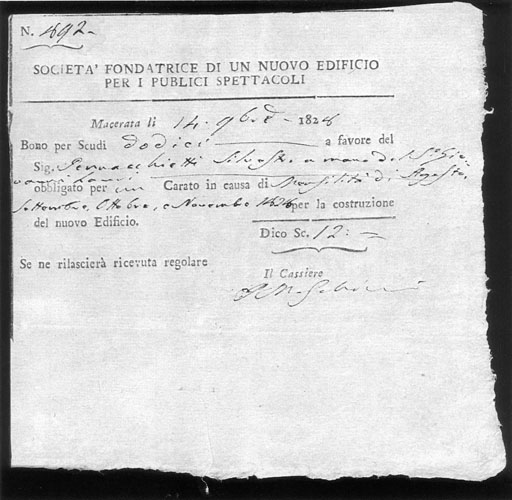 N. 1892-
SOCIETA' FONDATRICE DI UN NUOVO EDIFICIO
PER I PUBLICI SPETTACOLI
Macerata li 14. 9bre - 1828
Bono per Scudi dodici a favore del
Sig. Silvestro a mano del Sr Gio-
obbligato per un Carato in causa di Mensilità di Agosto,
Settembre, Ottobre, e Novembre 1828 per la costruzione
del nuovo Edificio.
Dico Sc. 12: -
Se ne rilascierà ricevuta regolare
Il Cassiere